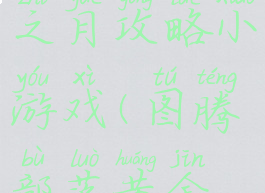 之月攻略小
yóu xì tú téng
游戏(图腾
bù luò huáng jīn
部落黄金